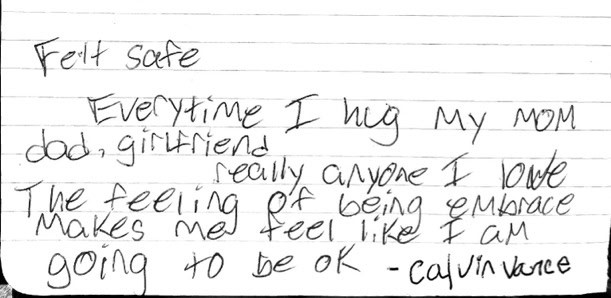 Felt safe
Everytime I hug my mom
dad, girlfriend
really anyone I love
The feeling of being embrace
makes me feel like I am
going to be ok - Calvin Vance